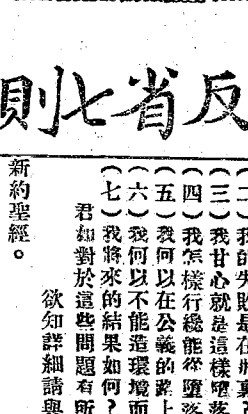 反省七則
我的失敗是在
(三)我甘心就是這樣墮落
(四)我怎樣行纔能從墮落
(五)我何以在公義的路上
(六)我何以不能造環境而
(七)我將來的結果如何?
君如對於這些問題有所
欲知詳細請與
新約聖經。